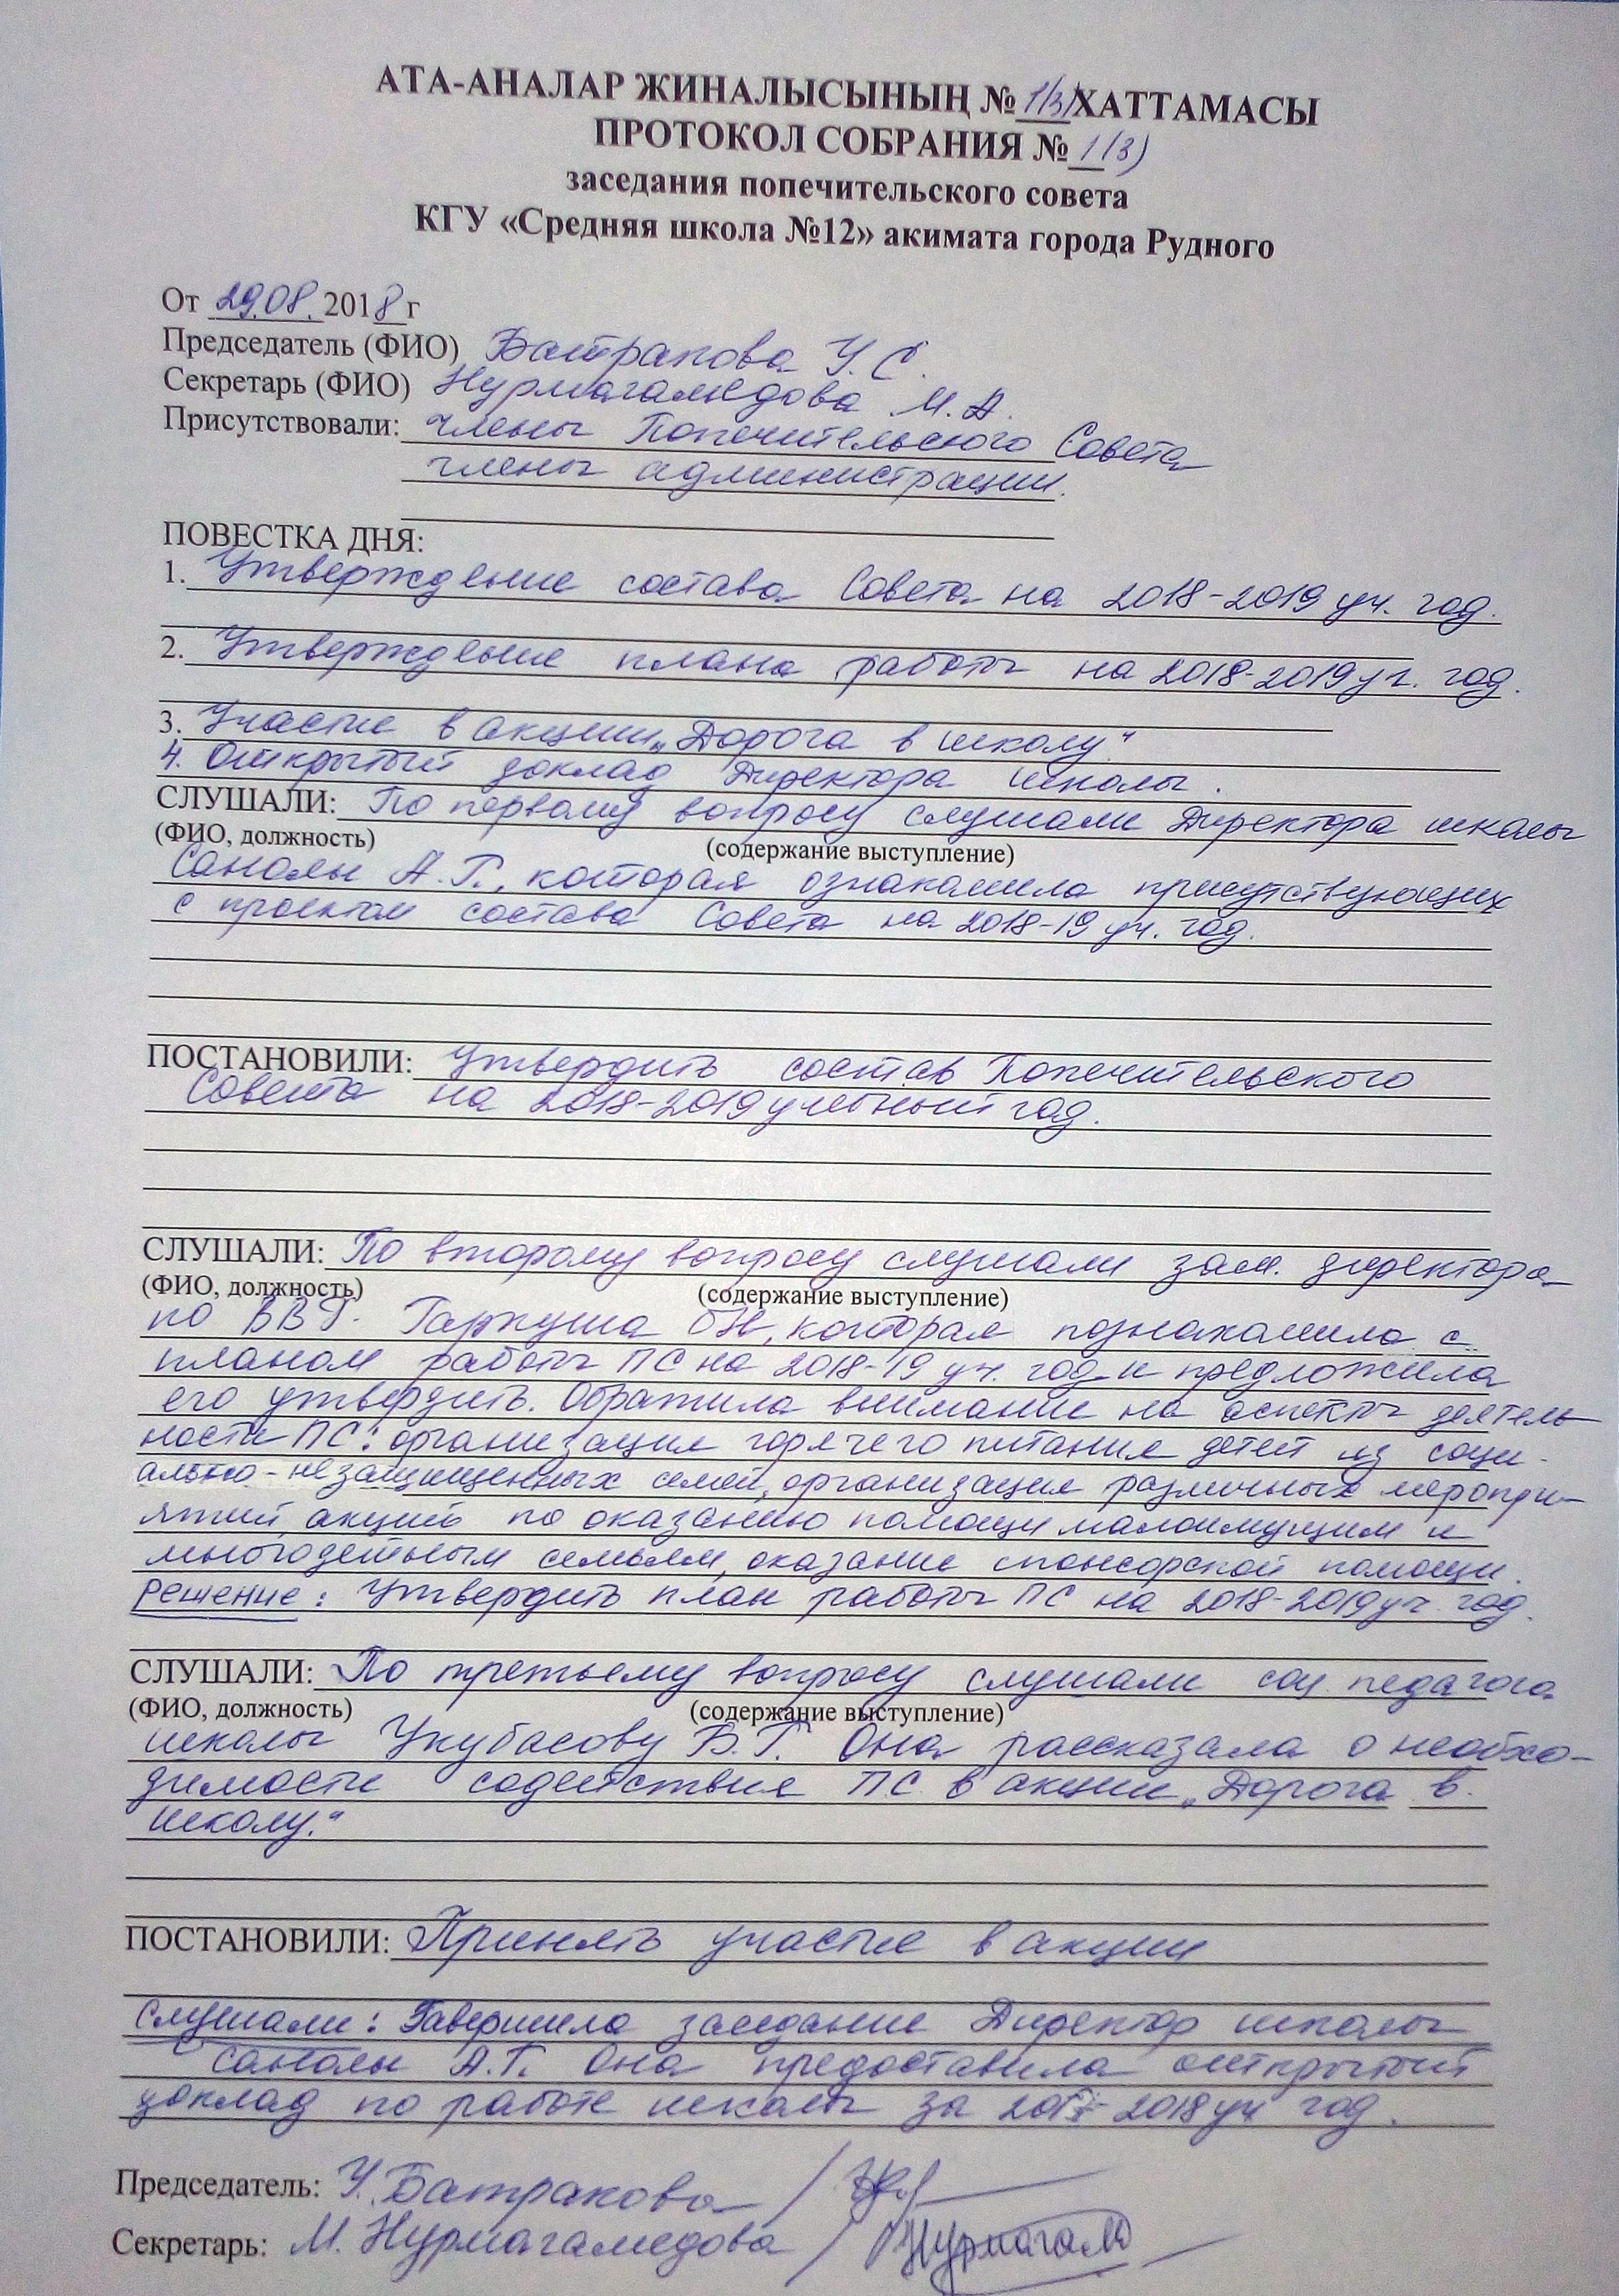 АТА-АНАЛАР ЖИНАЛЫСЫНЫҢ № 1(3) ХАТТАМАСЫ
ПРОТОКОЛ СОБРАНИЯ № 1(3)
заседания попечительского совета
КГУ «Средняя школа №12» акимата города Рудного
От 29.08. 2018 г
Председатель (ФИО) Батракова У. С.
Секретарь (ФИО) Нурмагамедова М. А.
Присутствовали: члены Попечительского Совета
члены администрации.
ПОВЕСТКА ДНЯ:
1. Утверждение состава Совета на 2018-2019 уч. год.
2. Утверждение плана работы на 2018-2019 уч. год.
3. Участие в акции „Дорога в школу"
4. Открытый доклад Директора школы.
СЛУШАЛИ: По первому вопросу слушали Директора школы
(ФИО, должность) (содержание выступление)
Саналы А. Г., которая ознакомила присутствующих
с проектом состава Совета на 2018-19 уч. год.
ПОСТАНОВИЛИ: Утвердить состав Попечительского
Совета на 2018-2019 учебный год.
СЛУШАЛИ: По второму вопросу слушали зам. директора
(ФИО, должность) (содержание выступление)
по ВВР. Гаркуша, которая познакомила с
планом работы ПС на 2018-19 уч. год и предложила
его утвердить. Обратила внимание на аспекты деятель
ности ПС: организация горячего питания детей из соци-
ально-незащищенных семей, организация различных меропри-
ятий, акций по оказанию помощи малоимущим и
многодетным семьям, оказание спонсорской помощи.
Решение: Утвердить план работы ПС на 2018-2019 уч. год.
СЛУШАЛИ: По третьему вопросу слушали соц. педагога
(ФИО, должность) (содержание выступление)
школы Укубасову Б. Г. Она рассказала о необхо-
димости содействия ПС в акции „Дорога в
школу."
ПОСТАНОВИЛИ: Принять участие в акции
Слушали: Завершила заседание Директор школы
Саналы А. Г. Она предоставила открытый
доклад по работе школы за 2017-2018 уч год.
Председатель: У. Батракова /
Секретарь: М. Нурмагамедова / Нурмагам